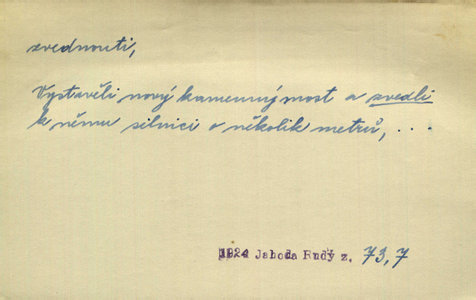 zvednouti,
Vystavěli nový kamenný most a zvedli
k němu silnici o několik metrů, ...
1924 Jahoda Rudý z. 73,7